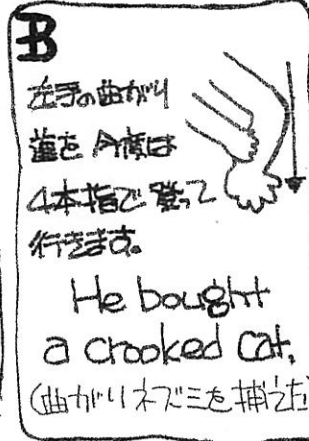 B
左手の曲がり
道を 今度は
4本指で 登って
行きます。
He bought
a crooked cat,
(曲がりネズミを捕えた